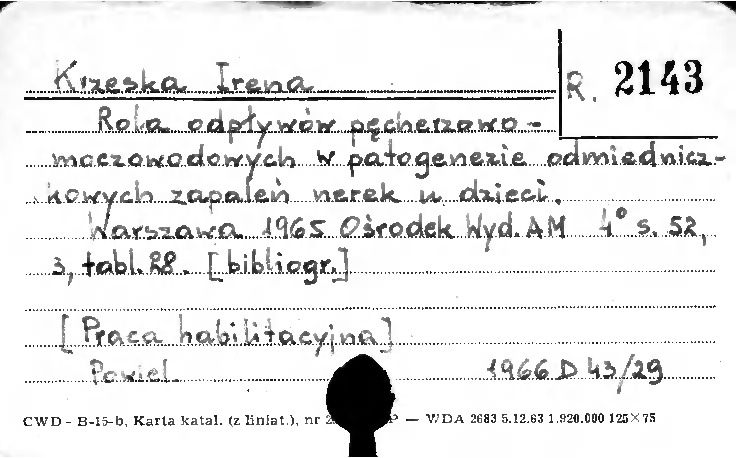 Krzeska Irena
R. 2143
Rola odpływów pęcherzowo-
moczowodowych w patogenezie odmiednicz-
kowych zapaleń nerek u dzieci.
Warszawa 1965 Ośrodek Wyd. AM 4° s. 52,
3, tabl. 28. [bibliogr.]
[Praca habilitacyjna]
Powiel. 1966 D 43/29
CWD - B-15-b, Karta katal. (z liniat.), nr — WDA 2683 5.12.63 1.920.000 125×75